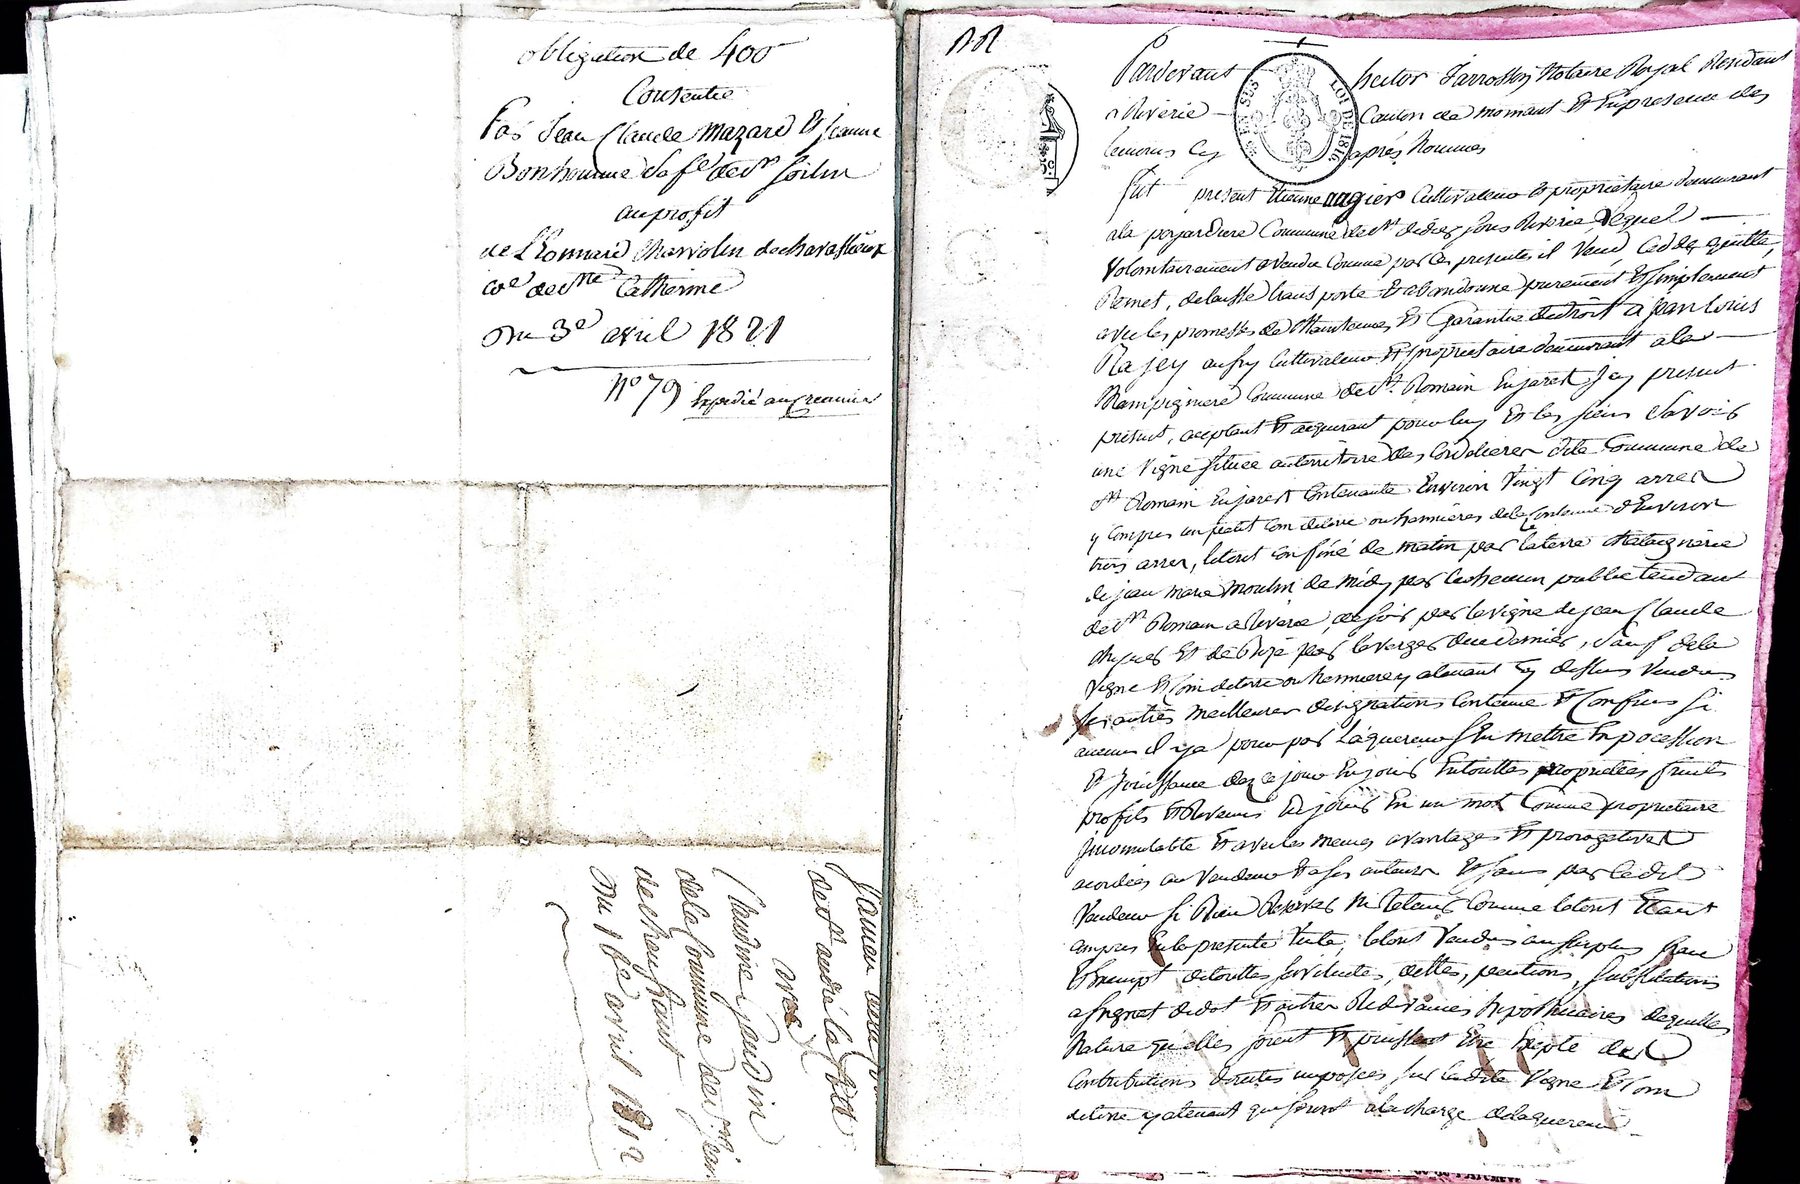 obligation de 400
Consentie
Par Jean Claude Mazard et Jeanne
Bonhomme Sa fe de St
au profit
de Lhonnard Charvolin de chavassieux
coe de Ste Catherine
Du 3e avril 1821
N° 79 Expedié au Creancier
de St andré la Côte
avec
Claudine jaudin
de la Commune de St jean
de chaussant
Du 16e avril 1812
Pardevant hector Jarrosson Notaire Royal Résidant
a Riverie Canton de mornant Et En presence des
temoins Cy après Nommés
EN SES LOI DE 1816
fut present Etienne augier Cultivateur et proprietaire demeurant
a la Commune de St didier sous Riverie, Lequel
Volontairement a Vendu Comme par Ces presentes il Vend Cedde quitte,
Remet, delaisse transporte Et abandonne purement Et Simplement
avec les promesses de Maintenue Et Garantie de droit a jean Louis
aussy Cultivateur Et proprietaire demeurant a la
Commune de St Romain En jarest Jcy present
present, aceptant Et acquerant pour luy Et les siens Savoir
une Vigne Située au territoire des Cordelieres dite Commune de
St Romain En jarest Contenante Environ Vingt Cinq arres
y Compris un petit Coin de terre ou hermieres de la Contenue d'Environ
trois arres, le tout Confiné de matin par la terre Chataignerie
de jean marie Moulin de midy par le chemin public tendant
de St Romain a Riverie, de soir par la vigne de jean Claude
Et de Bize par le verger du dernier, Sauf de la
Vigne Et Coin de terre ou hermieres y atenant Cy dessus Vendus
ses autres meilleures designations Contenue Et Confins si
aucuns il y a pour par Laquereur s'En mettre En pocession
Et jouissance dez Ce jour En jouir En touttes proprietées fruits
profits Et Revenus En jouir En un mot Comme proprietaire
jncomutable Et avec les memes avantages Et prorogatives
acordées au Vendeur Et a ses auteurs Et sans par Ledit
Vendeur Si Rien Reserver Ni Retenir Comme le tout Etant
Compris En la presente Vente, le tout Vendu au surplus franc
Et Exempt de touttes servitudes, dettes, pentions, Substitutions
de dot Et autres Redevances hipothecaires de quelles
Nature qu'elles soient Et puissent Etre Excepté des
Contributions directes imposées sur ladite Vigne Et Coin
de terre y atenant qui seront a la charge de laquereur